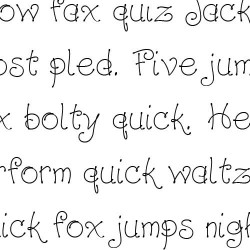 ow fax quiz Jack
ost pled. Five jum
x bolty quick. He
rform quick waltz
ick fox jumps nigh